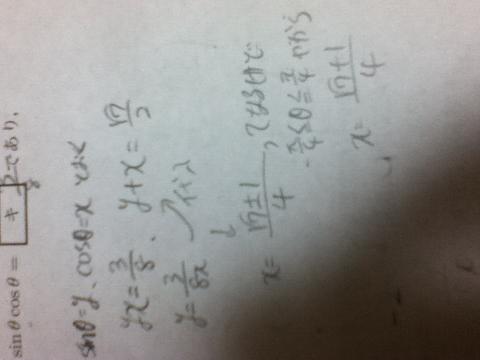 sinθcosθ = キ/8 であり、
sinθ=y、cosθ=x とおく
yx=3/8、y+x=√7/2
y=3/8x ↗代入
↓
x=√7±1/4、ってなるけど
-π/4≦θ≦π/4 だから
x=√7+1/4